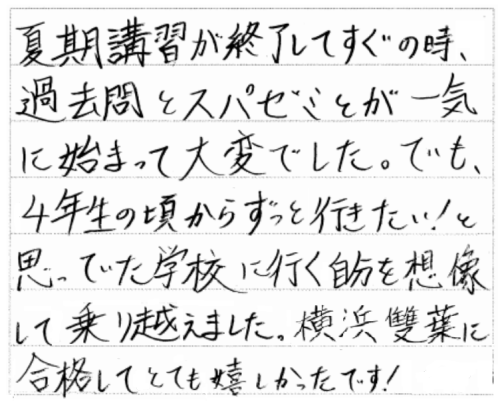 夏期講習が終了してすぐの時、
過去問とスパゼミとが一気
に始まって大変でした。でも、
4年生の頃からずっと行きたい!と
思っていた学校に行く自分を想像
して乗り越えました。横浜雙葉に
合格してとても嬉しかったです!